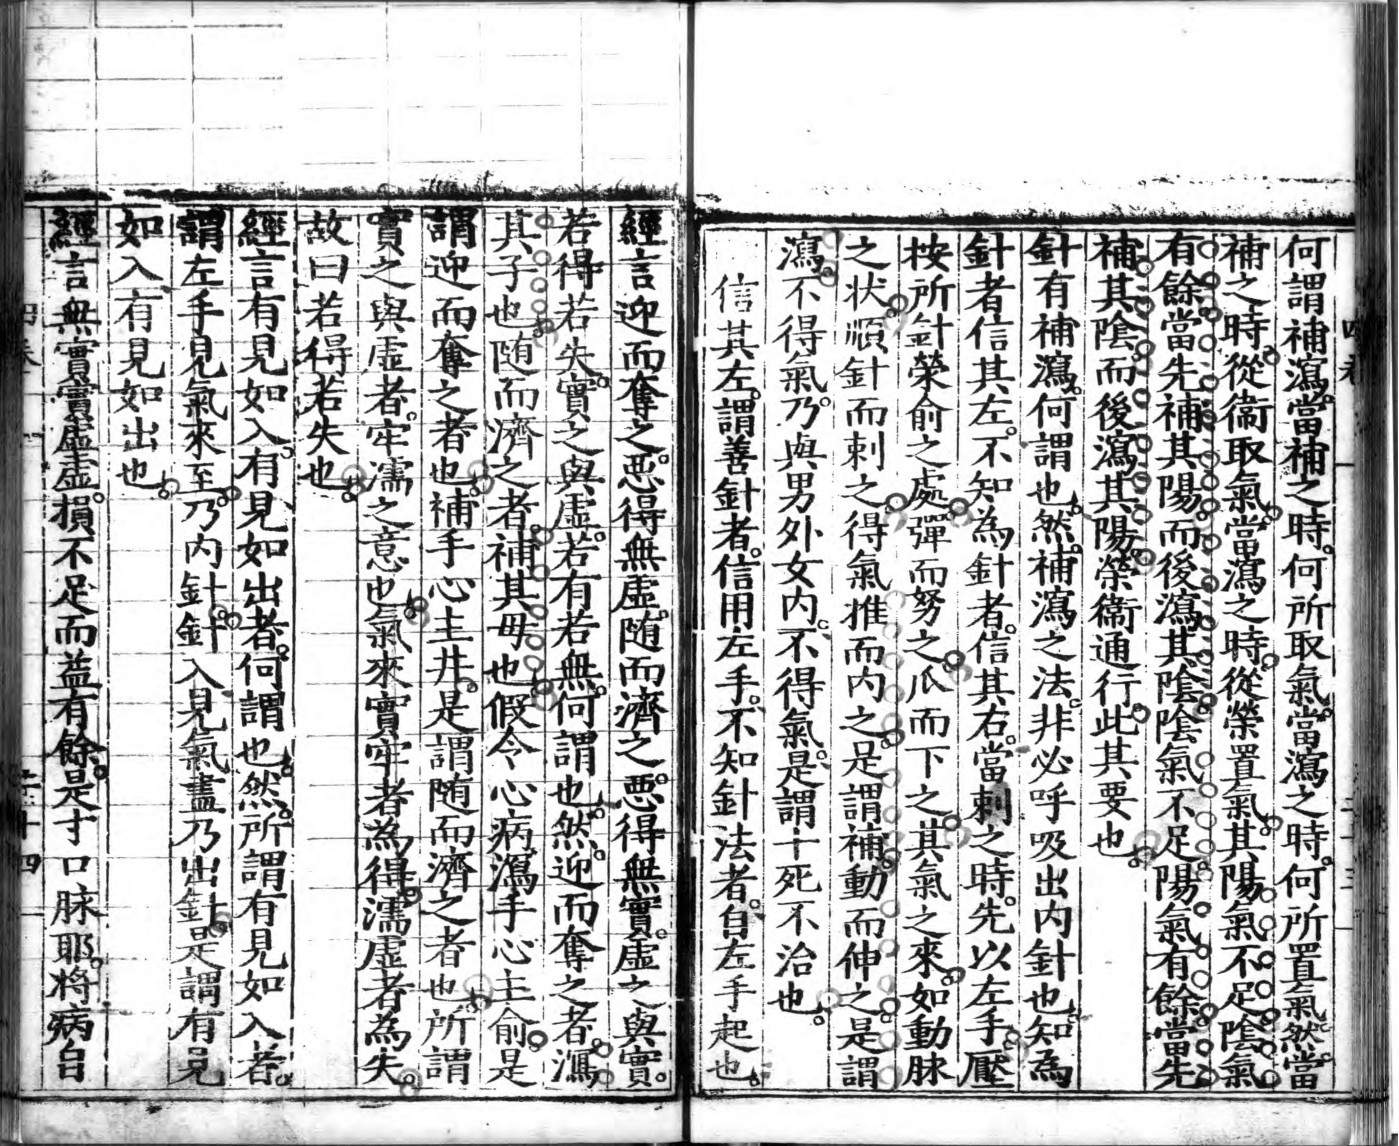 何謂補瀉當補之時何所取氣當瀉之時何所置氣然當
補之時從衞取氣當瀉之時從榮置氣其陽氣不足陰氣
有餘當先補其陽而後瀉其陰陰氣不足陽氣有餘當先
補其陰而後瀉其陽榮衞通行此其要也
針有補瀉何謂也然補瀉之法非必呼吸出內針也知為
針者信其左不知為針者信其右當刺之時先以左手壓
按所針榮俞之處彈而努之爪而下之其氣之來如動脉
之状順針而刺之得氣推而內之是謂補動而伸之是謂
瀉不得氣乃與男外女內不得氣是謂十死不治也
信其左謂善針者信用左手不知針法者自左手起也
經言迎而奪之惡得無虛随而濟之惡得無實虛之與實
若得若失實之與虛若有若無何謂也然迎而奪之者瀉
其子也随而濟之者補其母也假令心病瀉手心主俞是
謂迎而奪之者也補手心主井是謂随而濟之者也所謂
實之與虛者牢濡之意也氣來實牢者為得濡虛者為失
故曰若得若失也
經言有見如入有見如出者何謂也然所謂有見如入者
謂左手見氣來至乃內針針入見氣盡乃出針是謂有見
如入有見如出也
經言無實實虛虛損不足而益有餘是寸口脉耶将病自